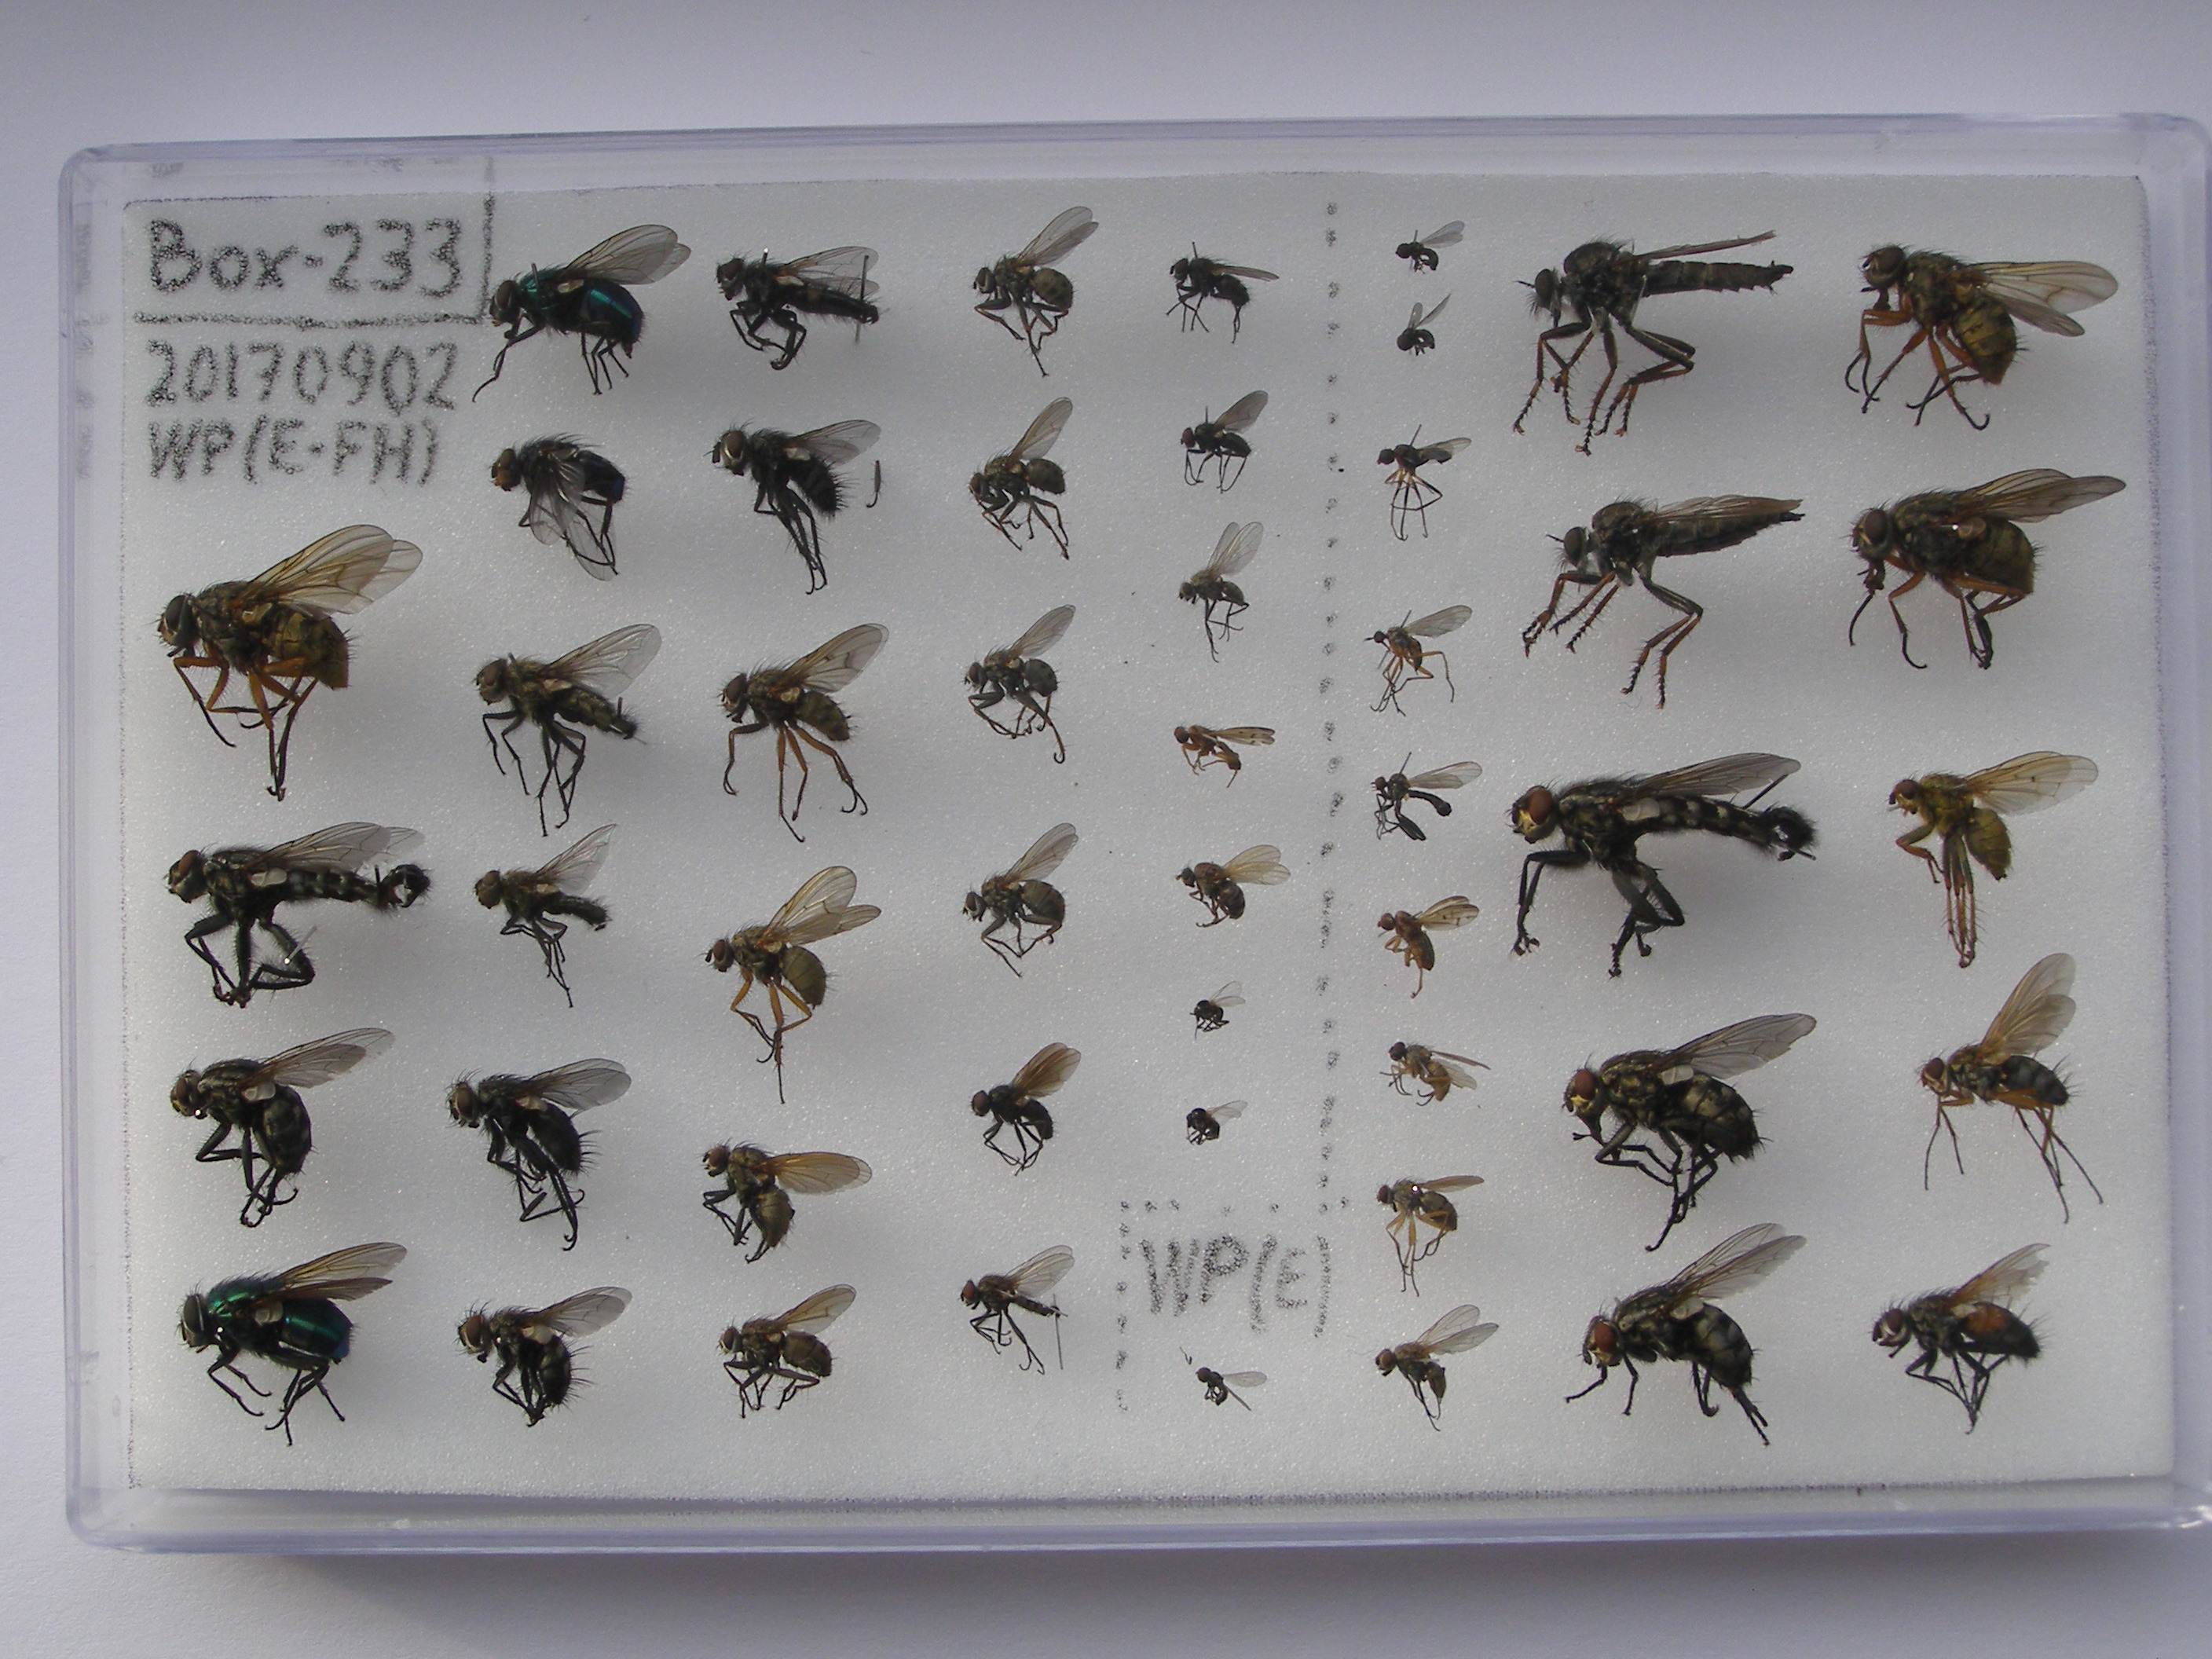 Box-233
20170902
WP(E-FH)
WP(E)